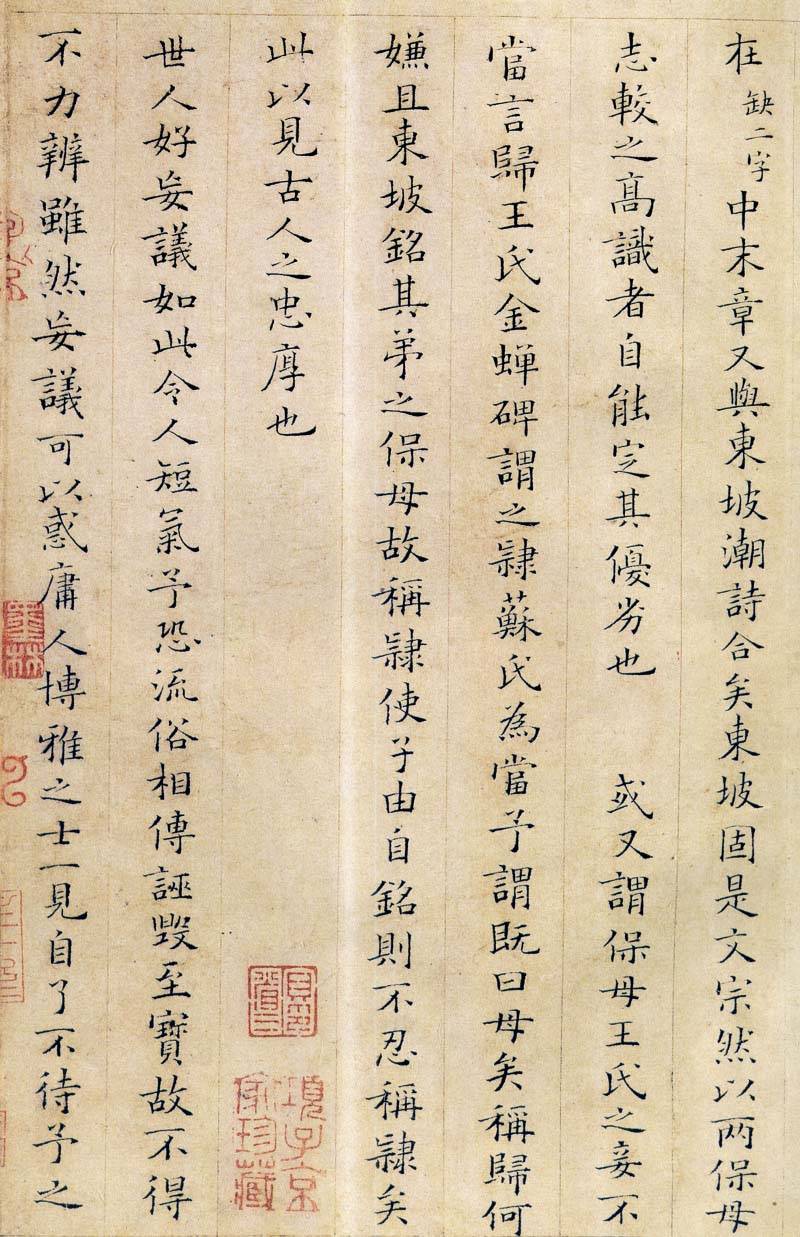 在缺二字中末章又與東坡潮詩合矣東坡固是文宗然以两保母
志較之髙識者自能㝎其優劣也　或又謂保母王氏之妾不
當言歸王氏金蟬碑謂之隷蘇氏為當予謂既曰母矣稱歸何
嫌且東坡銘其弟之保母故稱隷使子由自銘則不忍稱隷矣
此以見古人之忠厚也
項子京家珍藏
世人好妄議如此令人短氣予恐流俗相傳誣毀至寶故不得
不力辨雖然妄議可以惑庸人博雅之士一見自了不待予之